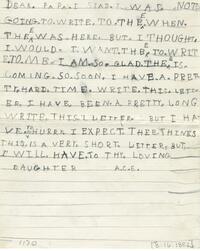 DEAR. PAPA. I. SAID. I. WAS. NOT.
GOING. TO. WRITE. TO. THEE. WHEN.
THEE. WAS. HERE. BUT. I. THOUGHT.
I. WOULD. I. WANT. THEE. TO. WRIT
E. TO. ME. I. AM. SO. GLAD. THEE. IS.
COMING. SO. SOON. I. HAVE. A. PRET
TY. HARD. TIME. WRITE. THIS. LETT
ER. I. HAVE. BEEN. A. PRETTY. LONG
WRITE. THIS. LETTER. BUT I HA
VE. TO HURRY. I. EXPECT. THEE THINKS
THIS. IS A VERY. SHORT LETTER. BUT.
I WILL HAVE. TO THY LOVING
DAUGHTER A.C.E.
1170 [8.14.1886]